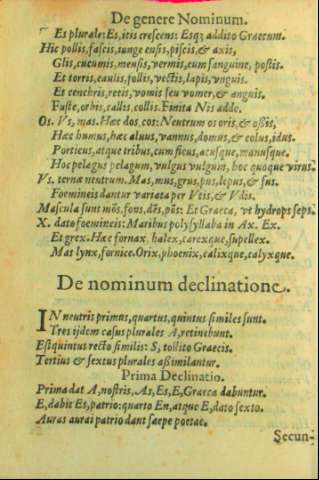 De genere Nominum.
Es plurale: Es, itis crescens: Esq; addito Graecum.
Hic pollis, fascis, iunge ensis, piscis, & axis,
Glis, cucumis, mensis, vermis, cum sanguine, postis.
Et torris, caulis, follis, vectis, lapis, vnguis.
Et cenchris, retis, vomis seu vomer, & anguis.
Fuste, orbis, callis, collis. Finita Nis adde.
Os. Vs, mas. Hæc dos, cos: Neutrum os oris, & ossis,
Hæc humus, hæc aluus, vannus, domus, & colus, idus.
Porticus, atque tribus, cum ficus, acusque, manusque.
Hoc pelagus pelagum, vulgus vulgum, hoc quoque virus.
Vs. ternæ neutrum. Mas, mus, grus, pus, lepus, & sus.
Foemineis dantur variata per Vtis, & Vdis.
Mascula sunt mõs, fons, dẽs, põs: Et Graeca, vt hydrops seps.
X. dato foemineis: Maribus polysyllaba in Ax. Ex.
Et grex. Hæc fornax, halex, carexque, supellex.
Mas lynx, fornice. Orix, phoenix, calixque, calyxque.
De nominum declinatione.
IN neutris primus, quartus, quintus similes sunt.
Tres ijdem casus plurales A, retinebunt.
Estquintus recto similis: S, tollito Graecis.
Tertius & sextus plurales assimilantur.
Prima Declinatio.
Prima dat A, nostris. As, Es, E, Graeca dabuntur.
E, dabit Es, patrio: quarto En, atque E, dato sexto.
Auras aurai patrio dant saepe poetae.
Secun-